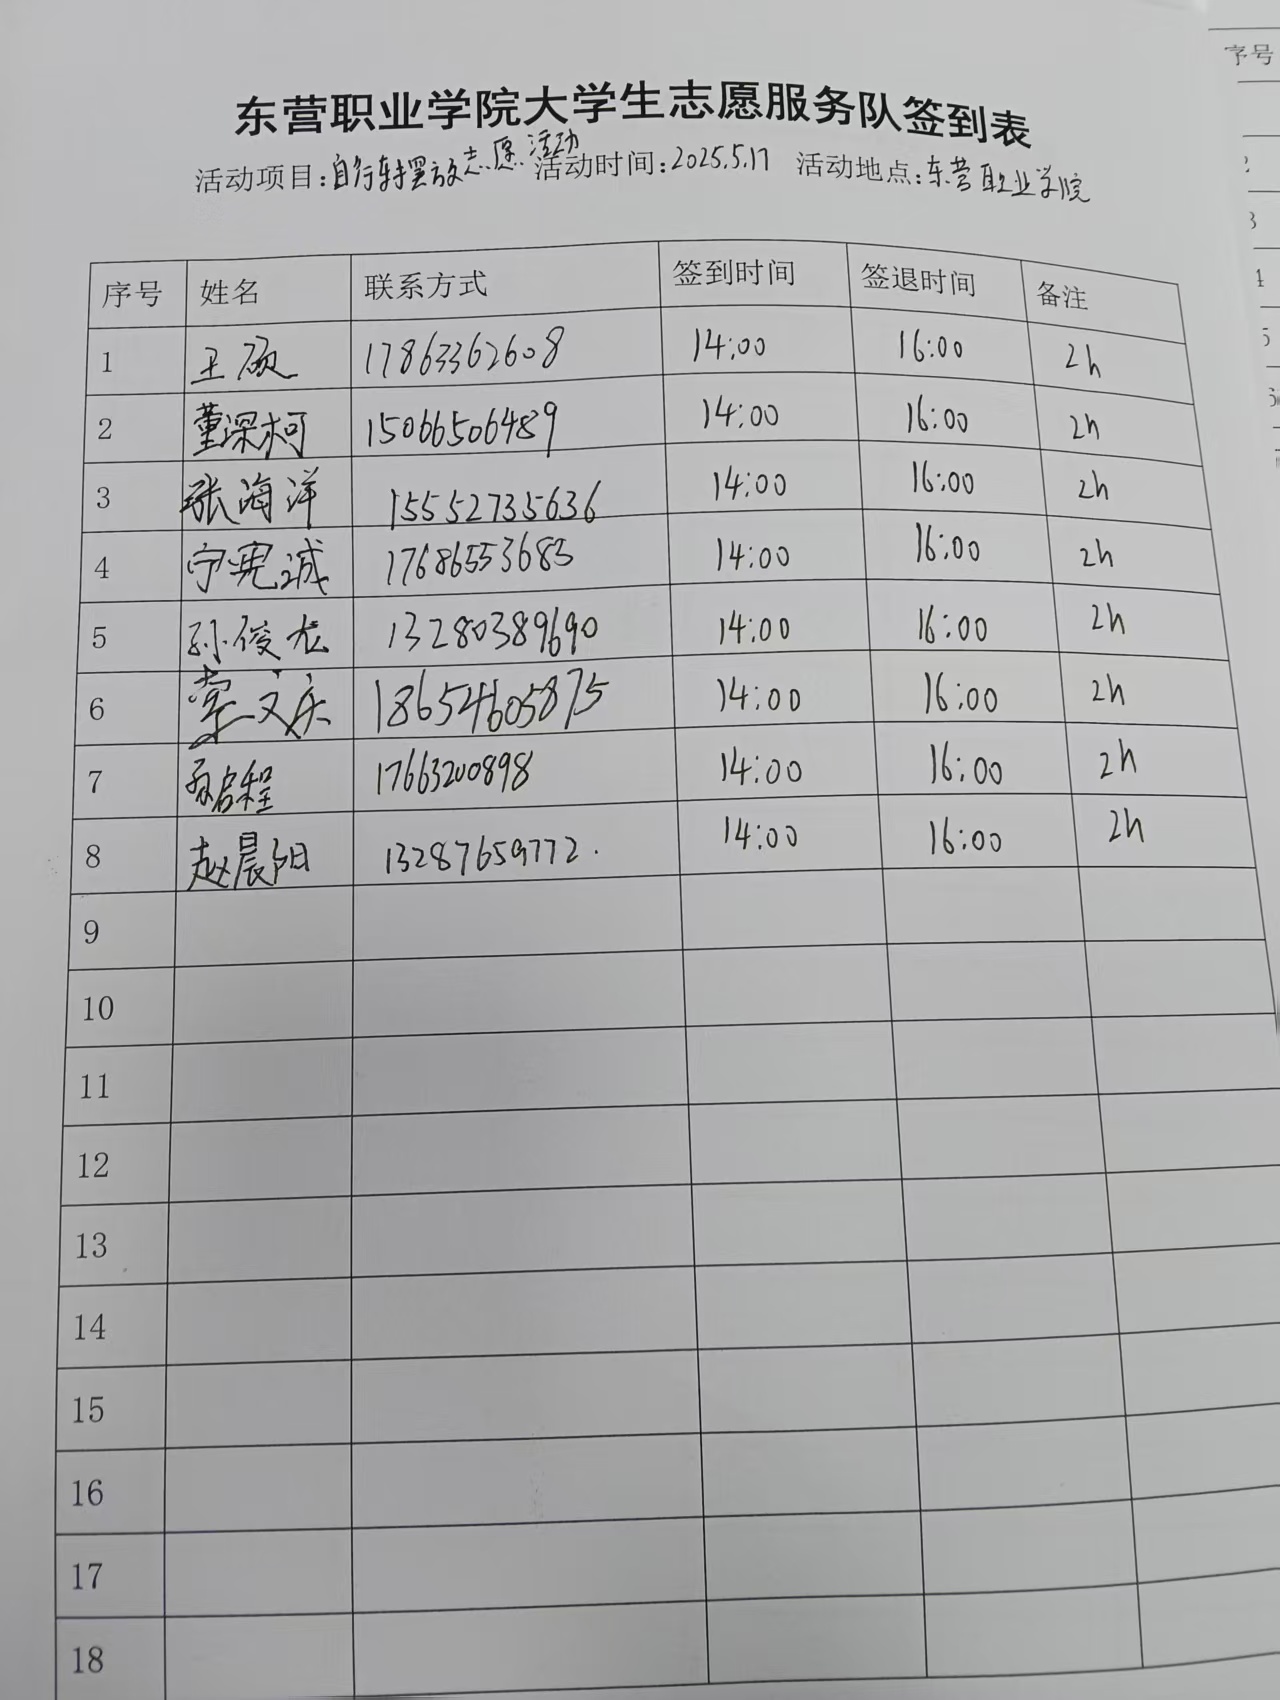 东营职业学院大学生志愿服务队签到表
活动项目:自行车摆放志愿活动 活动时间:2025.5.17 活动地点:东营职业学院
序号 姓名 联系方式 签到时间 签退时间 备注
1 王硕 17863362608 14:00 16:00 2h
2 董深柯 15066506489 14:00 16:00 2h
3 张海洋 15552735636 14:00 16:00 2h
4 宁宪诚 17686553683 14:00 16:00 2h
5 孙俊龙 13280389690 14:00 16:00 2h
6 文庆 18654605875 14:00 16:00 2h
7 启程 17663200898 14:00 16:00 2h
8 赵晨阳 13287659772. 14:00 16:00 2h
9
10
11
12
13
14
15
16
17
18
序号
3
5